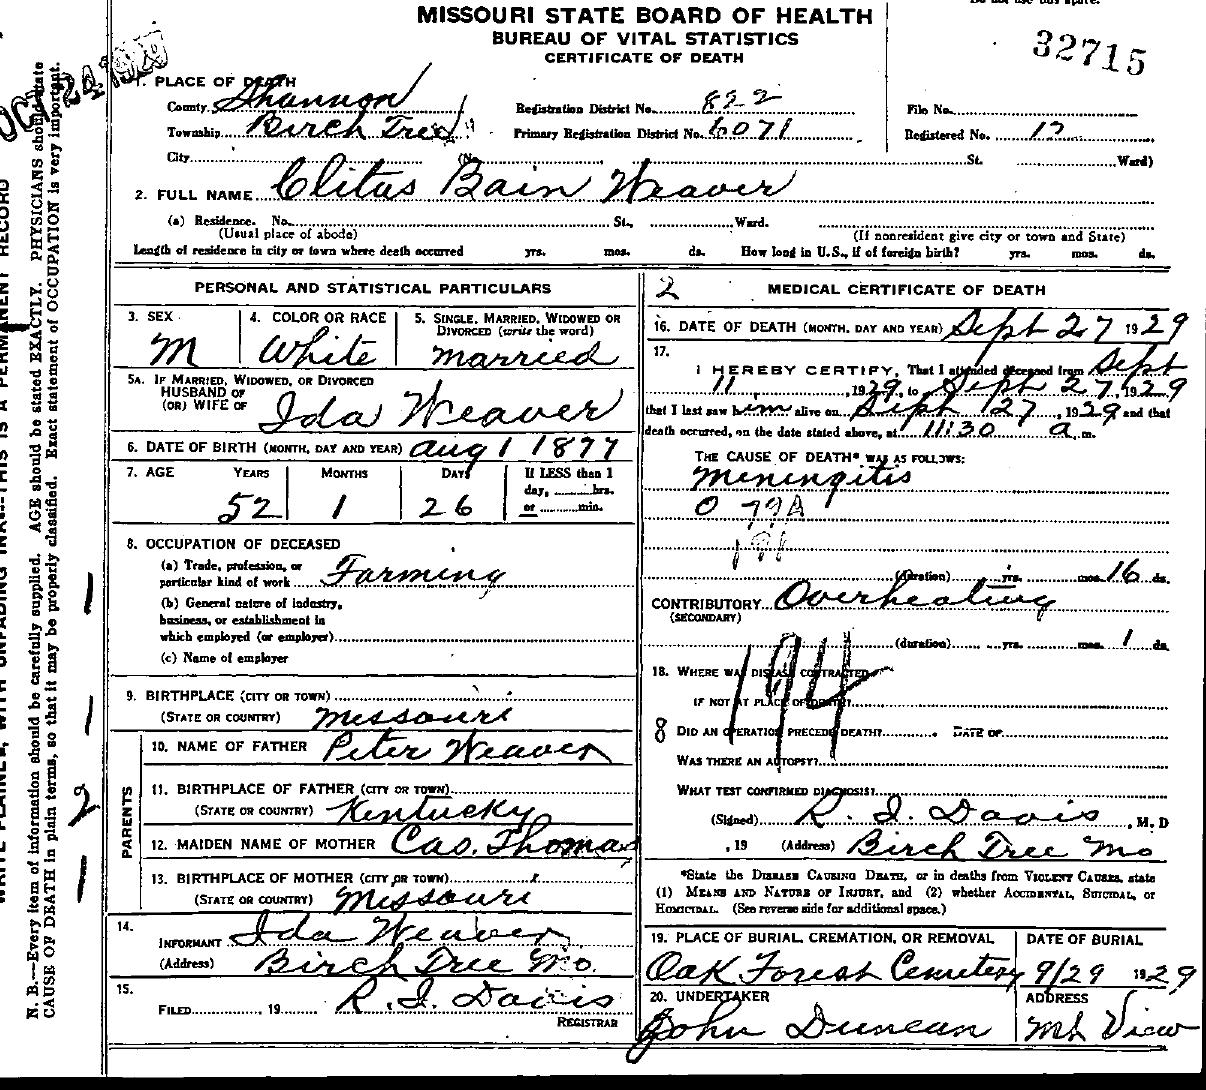 MISSOURI STATE BOARD OF HEALTH
BUREAU OF VITAL STATISTICS
CERTIFICATE OF DEATH
32715
OCT 24 1929
1. PLACE OF DEATH
County Shannon Registration District No. 822 File No.
Township Birch Tree Primary Registration District No. 6071 Registered No. 12
City (No. St. Ward)
2. FULL NAME Clitus Bain Weaver
(a) Residence. No. St., Ward.
(Usual place of abode) (If nonresident give city or town and State)
Length of residence in city or town where death occurred yrs. mos. ds. How long in U.S., if of foreign birth? yrs. mos. ds.
PERSONAL AND STATISTICAL PARTICULARS
3. SEX 4. COLOR OR RACE 5. SINGLE, MARRIED, WIDOWED OR
DIVORCED (write the word)
M White Married
5A. IF MARRIED, WIDOWED, OR DIVORCED
HUSBAND OF
(OR) WIFE OF Ida Weaver
6. DATE OF BIRTH (MONTH, DAY AND YEAR) Aug 1 1877
7. AGE YEARS MONTHS DAYS If LESS than 1
day, hrs.
52 1 26 or min.
8. OCCUPATION OF DECEASED
(a) Trade, profession, or
particular kind of work Farming
(b) General nature of industry,
business, or establishment in
which employed (or employer)
(c) Name of employer
9. BIRTHPLACE (CITY OR TOWN)
(STATE OR COUNTRY) Missouri
PARENTS
10. NAME OF FATHER Peter Weaver
11. BIRTHPLACE OF FATHER (CITY OR TOWN)
(STATE OR COUNTRY) Kentucky
12. MAIDEN NAME OF MOTHER Cas. Thomas
13. BIRTHPLACE OF MOTHER (CITY OR TOWN)
(STATE OR COUNTRY) Missouri
14.
INFORMANT Ida Weaver
(Address) Birch Tree Mo.
15.
FILED 19 R. I. Davis
REGISTRAR
2 MEDICAL CERTIFICATE OF DEATH
16. DATE OF DEATH (MONTH, DAY AND YEAR) Sept 27 1929
17.
I HEREBY CERTIFY, That I attended deceased from Sept
11, 1929, to Sept 27, 1929
that I last saw him alive on Sept 27, 1929 and that
death occurred, on the date stated above, at 11:30 a.m.
THE CAUSE OF DEATH* WAS AS FOLLOWS:
Meningitis
0 79A
(duration) yrs. mos. 16 ds.
CONTRIBUTORY Overheating
(SECONDARY)
(duration) yrs. mos. 1 ds.
194
18. WHERE WAS DISEASE CONTRACTED
IF NOT AT PLACE OF DEATH?
8 DID AN OPERATION PRECEDE DEATH? DATE OF
WAS THERE AN AUTOPSY?
WHAT TEST CONFIRMED DIAGNOSIS?
(Signed) R. I. Davis, M. D
, 19 (Address) Birch Tree Mo
*State the DISEASE CAUSING DEATH, or in deaths from VIOLENT CAUSES, state
(1) MEANS AND NATURE OF INJURY, and (2) whether ACCIDENTAL, SUICIDAL, or
HOMICIDAL. (See reverse side for additional space.)
19. PLACE OF BURIAL, CREMATION, OR REMOVAL DATE OF BURIAL
Oak Forest Cemetery 9/29 1929
20. UNDERTAKER ADDRESS
John Duncan Mt View
N. B.—Every item of information should be carefully supplied. AGE should be stated EXACTLY. PHYSICIANS should state
CAUSE OF DEATH in plain terms, so that it may be properly classified. Exact statement of OCCUPATION is very important.
1
1
2
1